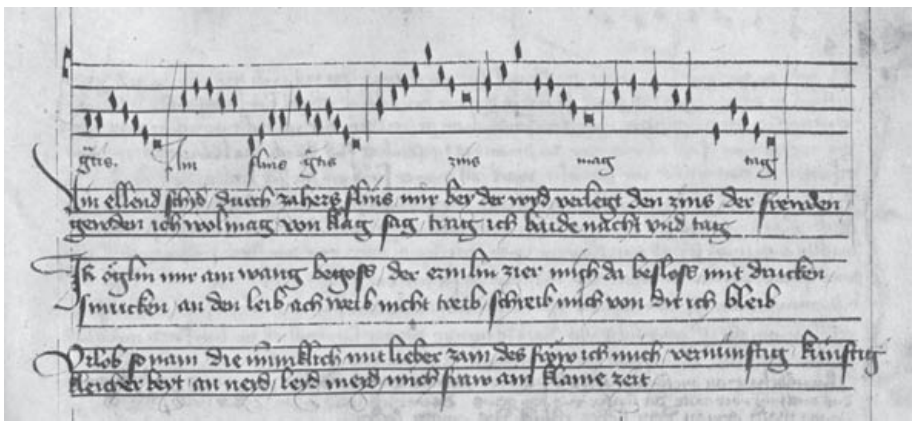 flins zins mag tag
ellend schid durch zahers flins mir bey der wyd verlegt den zins der frewden
geuden ich wolmag von klag sag trag ich baide nacht vnd tag
Ir öglin mir ain wang begoss der ermlin zier mich da besloss mit drucken
smucken an den leib ach weib nicht treib schreib mich von dir ich bleib
Vrlob so nam die minniklich mit lieber zam des fröw ich mich vernünftig künftig
beyt an neyd leyd meyd mich fraw ain klaine zeit